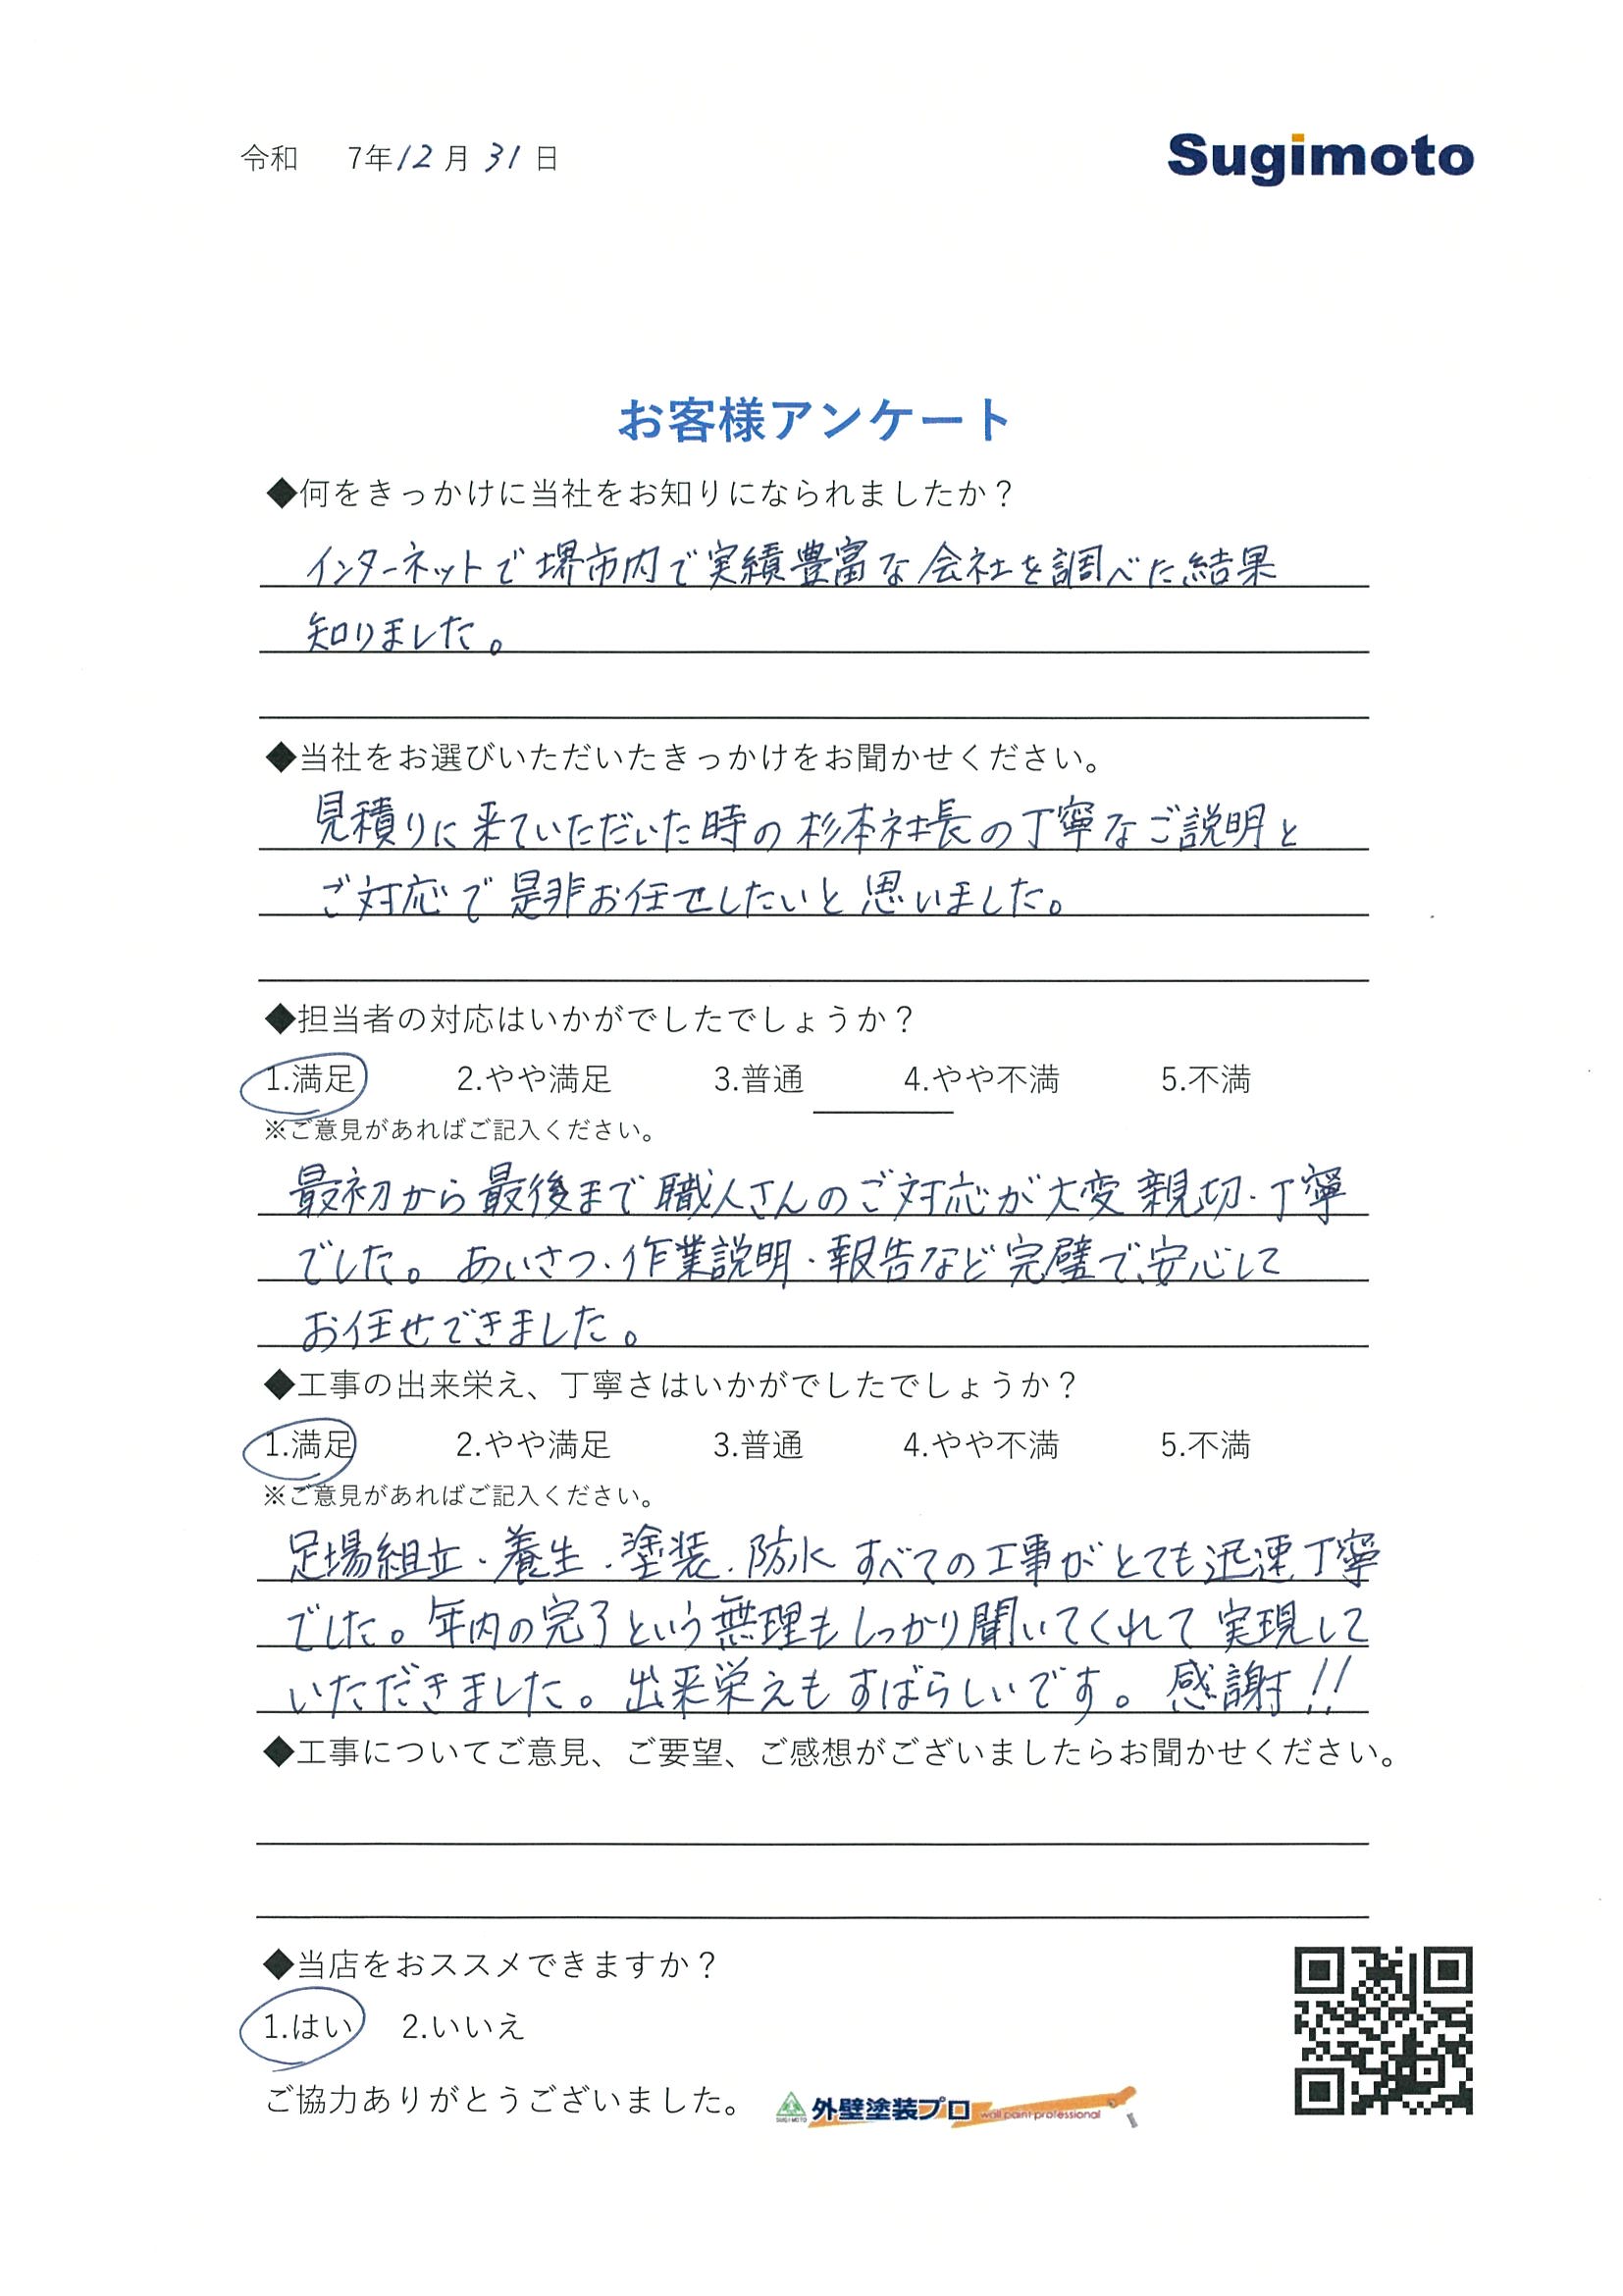 令和 7年12月31日
Sugimoto
お客様アンケート
◆何をきっかけに当社をお知りになられましたか？
インターネットで堺市内で実績豊富な会社を調べた結果
知りました。
◆当社をお選びいただいたきっかけをお聞かせください。
見積りに来ていただいた時の杉本社長の丁寧なご説明と
ご対応で是非お任せしたいと思いました。
◆担当者の対応はいかがでしたでしょうか？
1.満足 2.やや満足 3.普通 4.やや不満 5.不満
※ご意見があればご記入ください。
最初から最後まで職人さんのご対応が大変親切・丁寧
でした。あいさつ・作業説明・報告など完璧で、安心して
お任せできました。
◆工事の出来栄え、丁寧さはいかがでしたでしょうか？
1.満足 2.やや満足 3.普通 4.やや不満 5.不満
※ご意見があればご記入ください。
足場組立・養生・塗装・防水すべての工事がとても迅速丁寧
でした。年内の完了という無理もしっかり聞いてくれて実現して
いただきました。出来栄えもすばらしいです。感謝!!
◆工事についてご意見、ご要望、ご感想がございましたらお聞かせください。
◆当店をおススメできますか？
1.はい 2.いいえ
ご協力ありがとうございました。
SUGIMOTO 外壁塗装プロ wall paint professional